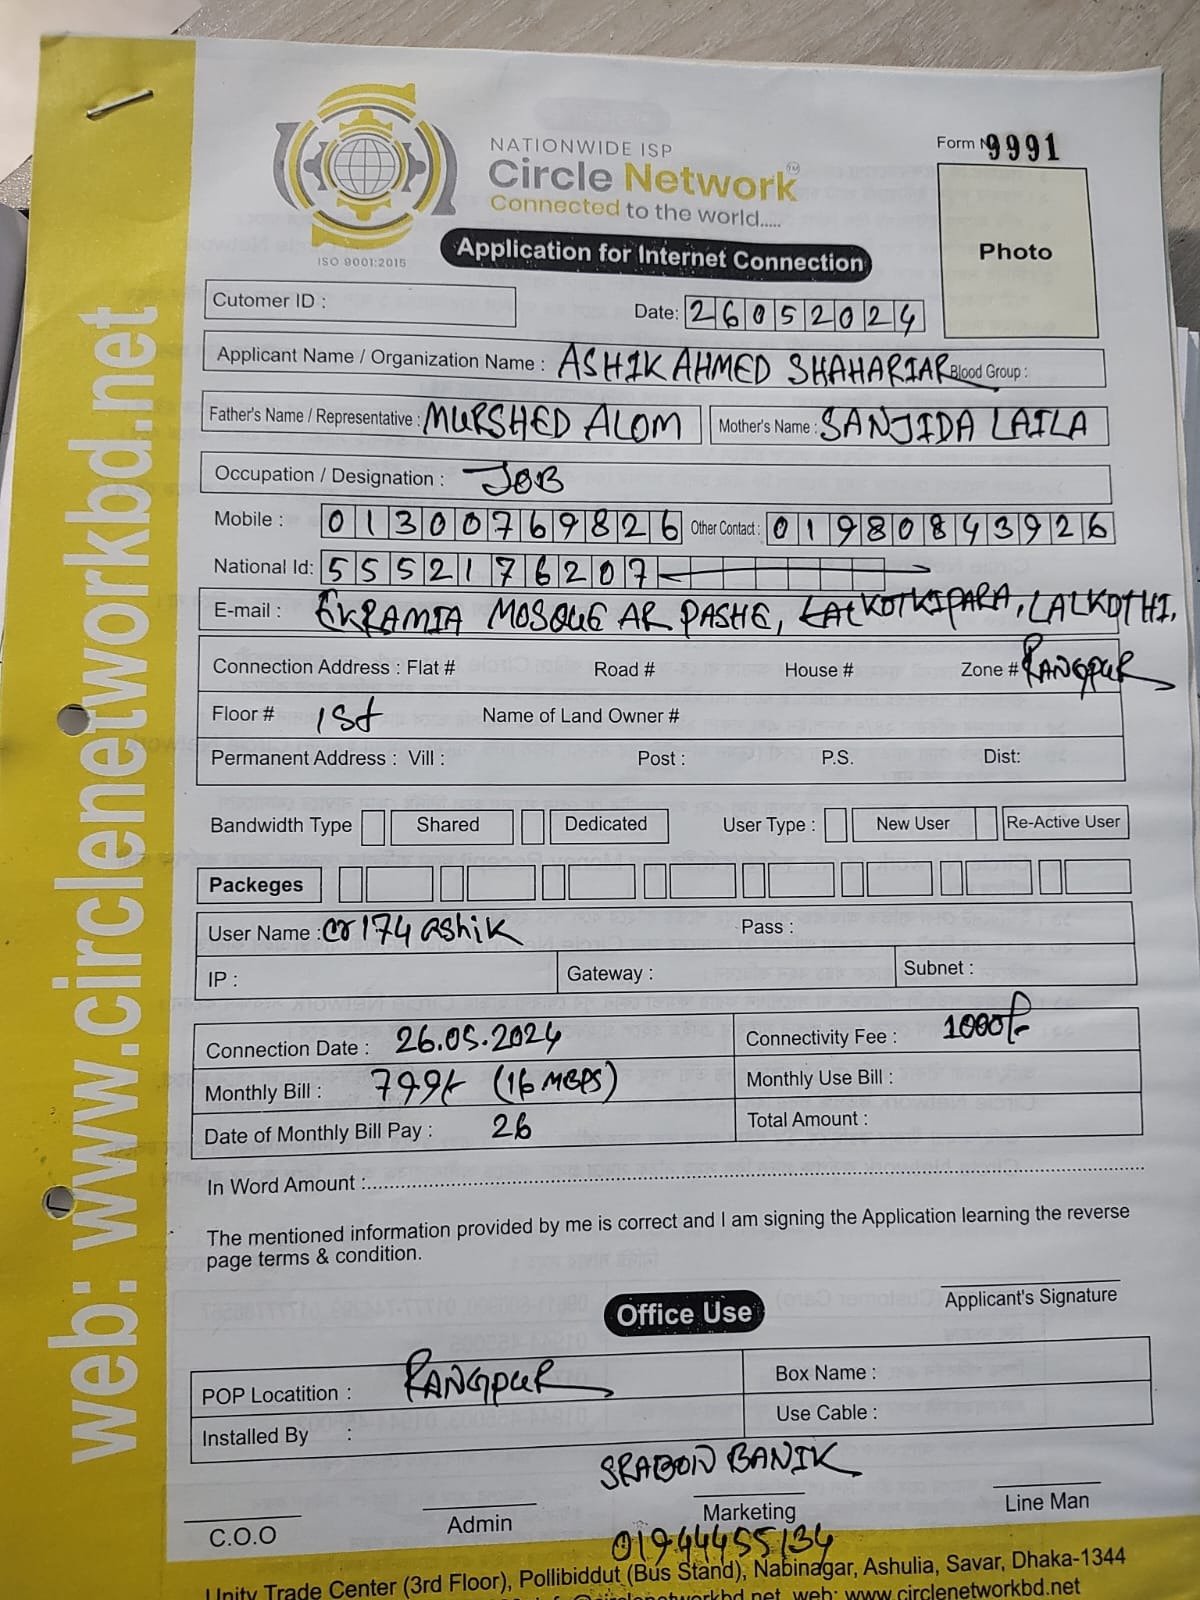 web: www.circlenetworkbd.net
NATIONWIDE ISP
Circle Network TM
Connected to the world.....
ISO 9001:2015
Application for Internet Connection
Form N 9991
Photo
Cutomer ID :
Date: 26052024
Applicant Name / Organization Name : ASHIK AHMED SHAHARIAR Blood Group :
Father's Name / Representative : MURSHED ALOM Mother's Name : SANJIDA LAILA
Occupation / Designation : JOB
Mobile : 01300769826 Other Contact : 01980843926
National Id: 5552176207
E-mail : EKRAMIA MOSQUE AR PASHE, LALKOTHI,
Connection Address : Flat # Road # House # Zone # RANGPUR
Floor # 1st Name of Land Owner #
Permanent Address : Vill : Post : P.S. Dist:
Bandwidth Type Shared Dedicated User Type : New User Re-Active User
Packeges
User Name : cr174ashik Pass :
IP : Gateway : Subnet :
Connection Date : 26.05.2024 Connectivity Fee : 1000/-
Monthly Bill : 799/- (16 MBPS) Monthly Use Bill :
Date of Monthly Bill Pay : 26 Total Amount :
In Word Amount :
The mentioned information provided by me is correct and I am signing the Application learning the reverse
page terms & condition.
Applicant's Signature
Office Use
POP Locatition : RANGPUR Box Name :
Installed By : Use Cable :
SRABON BANIK
C.O.O Admin Marketing Line Man
01944455134
Unity Trade Center (3rd Floor), Pollibiddut (Bus Stand), Nabinagar, Ashulia, Savar, Dhaka-1344
web: www.circlenetworkbd.net